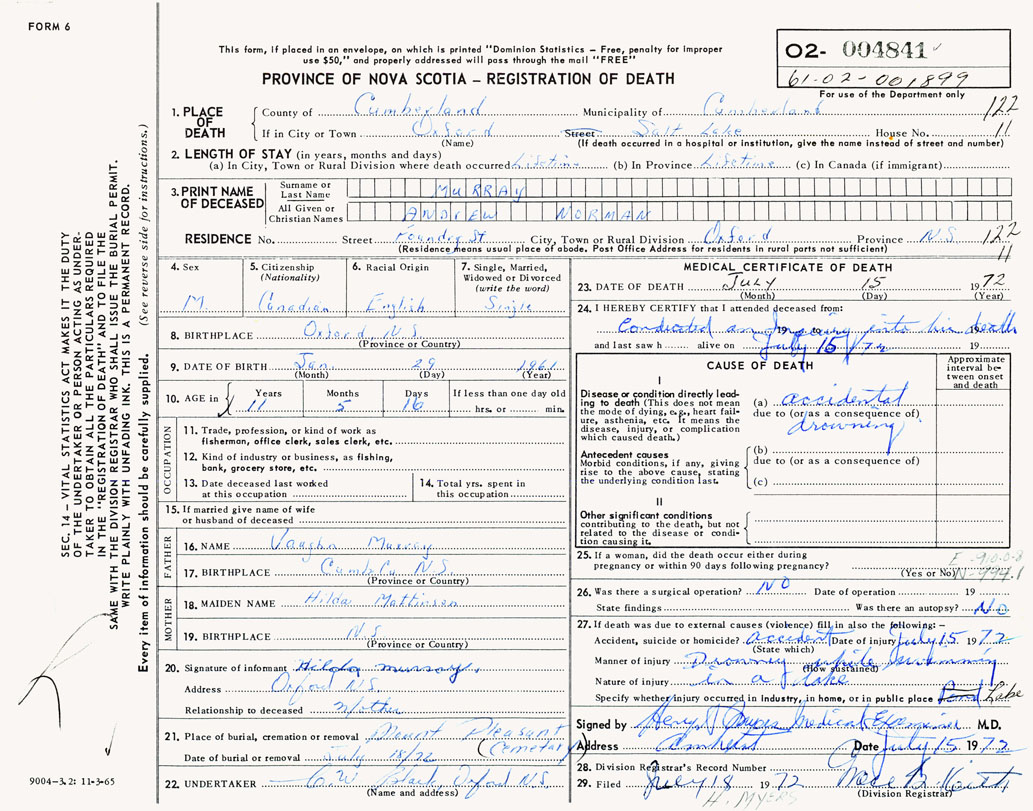 FORM 6
This form, if placed in an envelope, on which is printed "Dominion Statistics – Free, penalty for improper
use $50," and properly addressed will pass through the mail "FREE"
PROVINCE OF NOVA SCOTIA – REGISTRATION OF DEATH
O2- 004841
61-02-001899
For use of the Department only
1. PLACE OF DEATH
County of Cumberland Municipality of Cumberland 122
If in City or Town Oxford Street Salt Lake House No. 11
(Name) (If death occurred in a hospital or institution, give the name instead of street and number)
2. LENGTH OF STAY (in years, months and days)
(a) In City, Town or Rural Division where death occurred Lifetime (b) In Province Lifetime (c) In Canada (if immigrant)
3. PRINT NAME OF DECEASED
Surname or Last Name MURRAY
All Given or Christian Names ANDREW NORMAN
RESIDENCE No. Street Foundry St City, Town or Rural Division Oxford Province N.S 122
(Residence means usual place of abode. Post Office Address for residents in rural parts not sufficient) 11
4. Sex M.
5. Citizenship (Nationality) Canadian
6. Racial Origin English
7. Single, Married, Widowed or Divorced (write the word) Single
8. BIRTHPLACE Oxford N.S
(Province or Country)
9. DATE OF BIRTH Jan. 29 1961
(Month) (Day) (Year)
10. AGE in Years Months Days If less than one day old
11 5 16 hrs. or min.
OCCUPATION
11. Trade, profession, or kind of work as
fisherman, office clerk, sales clerk, etc.
12. Kind of industry or business, as fishing,
bank, grocery store, etc.
13. Date deceased last worked
at this occupation
14. Total yrs. spent in
this occupation
15. If married give name of wife
or husband of deceased
FATHER
16. NAME Vaughn Murray
17. BIRTHPLACE Cumb Co N.S.
(Province or Country)
MOTHER
18. MAIDEN NAME Hilda Mattinson
19. BIRTHPLACE N.S
(Province or Country)
20. Signature of informant Hilda Murray.
Address Oxford N.S.
Relationship to deceased Mother
21. Place of burial, cremation or removal Mount Pleasant
(Cemetary)
Date of burial or removal July 18/72
22. UNDERTAKER C.W. Black, Oxford N.S.
(Name and address)
MEDICAL CERTIFICATE OF DEATH
23. DATE OF DEATH July 15 1972
(Month) (Day) (Year)
24. I HEREBY CERTIFY that I attended deceased from:
Conducted an Inquiry into his death 19 to 19
and last saw h alive on July 15/72 19
CAUSE OF DEATH
Approximate interval between onset and death
I
Disease or condition directly leading to death (This does not mean the mode of dying, e.g., heart failure, asthenia, etc. It means the disease, injury, or complication which caused death.)
(a) accidental
due to (or as a consequence of)
drowning
Antecedent causes
Morbid conditions, if any, giving rise to the above cause, stating the underlying condition last.
(b)
due to (or as a consequence of)
(c)
II
Other significant conditions
contributing to the death, but not related to the disease or condition causing it.
25. If a woman, did the death occur either during
pregnancy or within 90 days following pregnancy?
(Yes or No) N-994.1
26. Was there a surgical operation? NO Date of operation 19
State findings Was there an autopsy? No
27. If death was due to external causes (violence) fill in also the following: –
Accident, suicide or homicide? accident Date of injury July 15 1972
(State which)
Manner of injury while swimming
(How sustained)
Nature of injury in a lake
Specify whether injury occurred in industry, in home, or in public place Lake
Signed by Medical Examiner M.D.
Address Amherst Date July 15 1972
28. Division Registrar's Record Number
29. Filed July 18 1972
(Division Registrar)
H. MYERS
SEC. 14 – VITAL STATISTICS ACT MAKES IT THE DUTY
OF THE UNDERTAKER OR PERSON ACTING AS UNDER-
TAKER TO OBTAIN ALL THE PARTICULARS REQUIRED
IN THE "REGISTRATION OF DEATH" AND TO FILE THE
SAME WITH THE DIVISION REGISTRAR WHO SHALL ISSUE THE BURIAL PERMIT.
WRITE PLAINLY WITH UNFADING INK. THIS IS A PERMANENT RECORD.
Every item of information should be carefully supplied. (See reverse side for instructions.)
9004-3.2: 11-3-65